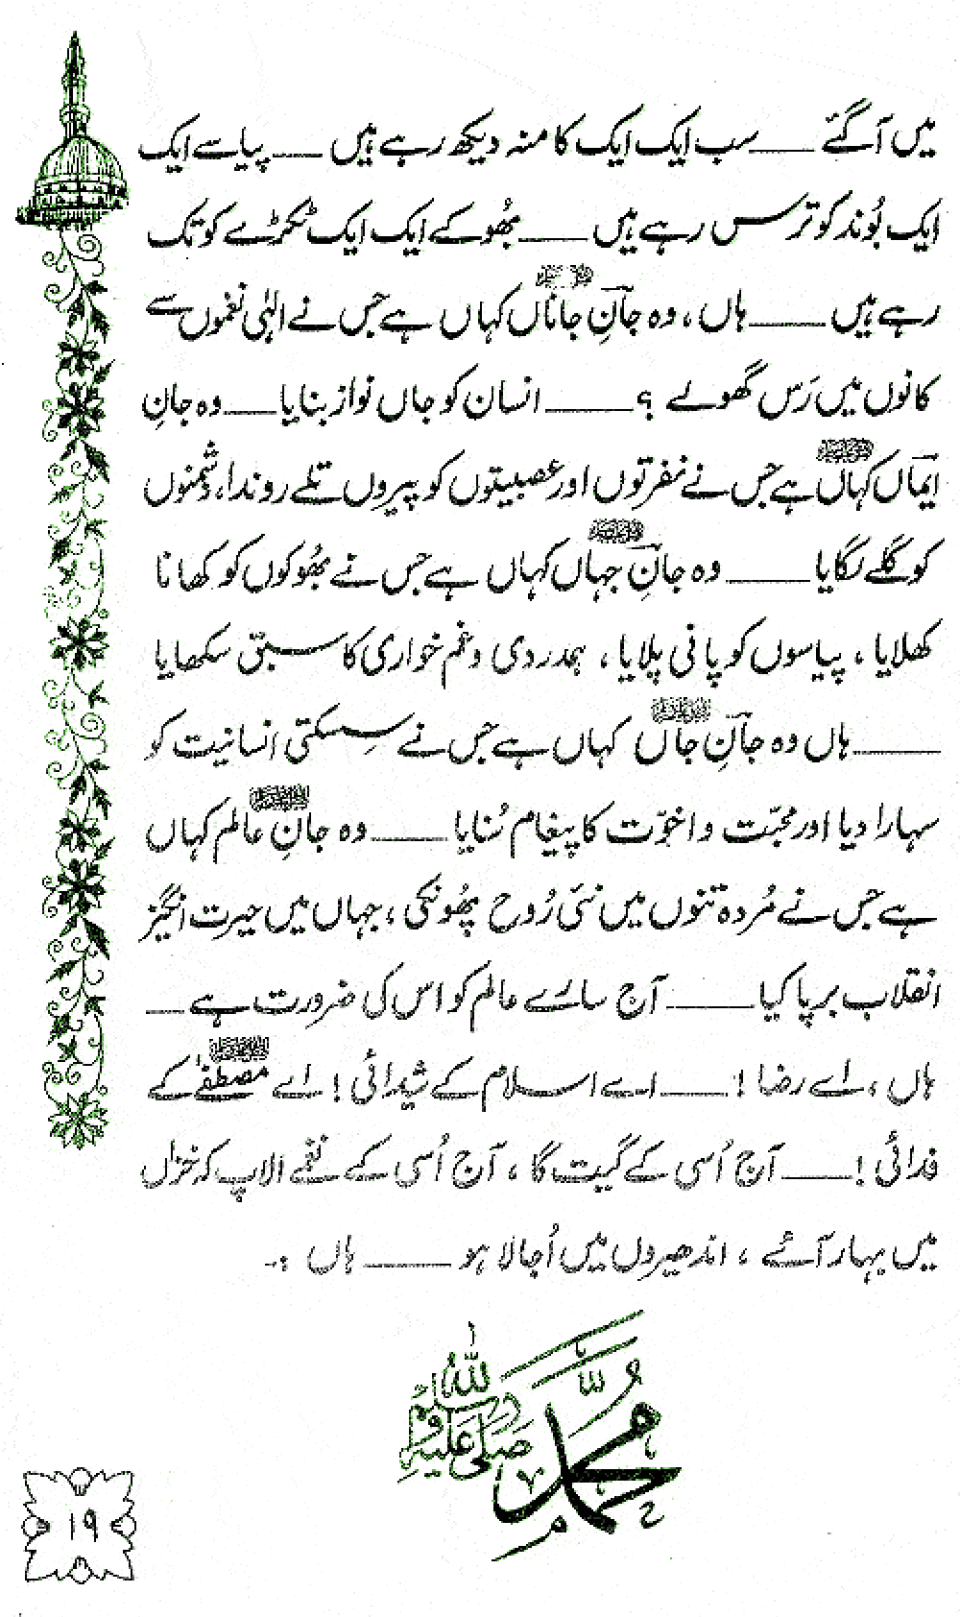 میں آگئے ــــــ سب ایک ایک کا منہ دیکھ رہے ہیں ــــــ پیاسے ایک
ایک بُوند کو ترس رہے ہیں ــــــ بُھوکے ایک ایک ٹکڑے کو تک
رہے ہیں ــــــ ہاں، وہ جانِ جاناں ﷺ کہاں ہے جس نے الٰہی نغموں سے
کانوں میں رَس گھولے ؟ ــــــ انسان کو جاں نواز بنایا ــــــ وہ جانِ
ایماں ﷺ کہاں ہے جس نے نفرتوں اور عصبیتوں کو پیروں تلے روندا، دشمنوں
کو گلے لگایا ــــــ وہ جانِ جہاں ﷺ کہاں ہے جس نے بُھوکوں کو کھانا
کھلایا، پیاسوں کو پانی پلایا، ہمدردی و غم خواری کا سبق سکھایا
ــــــ ہاں وہ جانِ جاں ﷺ کہاں ہے جس نے سِسکتی انسانیت کو
سہارا دیا اور محبّت و اخوّت کا پیغام سُنایا ــــــ وہ جانِ عالم ﷺ کہاں
ہے جس نے مُردہ تنوں میں نئی رُوح پُھونکی، جہاں میں حیرت انگیز
انقلاب برپا کیا ــــــ آج سارے عالم کو اس کی ضرورت ہے ــــــ
ہاں، اے رضا ! ــــــ اے اسلام کے شیدائی ! اے مصطفےٰ ﷺ کے
فدائی ! ــــــ آج اُسی کے گیت گا، آج اُسی کے نغمے الاپ کہ خزاں
میں بہار آئے، اندھیروں میں اُجالا ہو ــــــ ہاں :۔
محمد صلی اللہ علیہ وسلم
۱۹